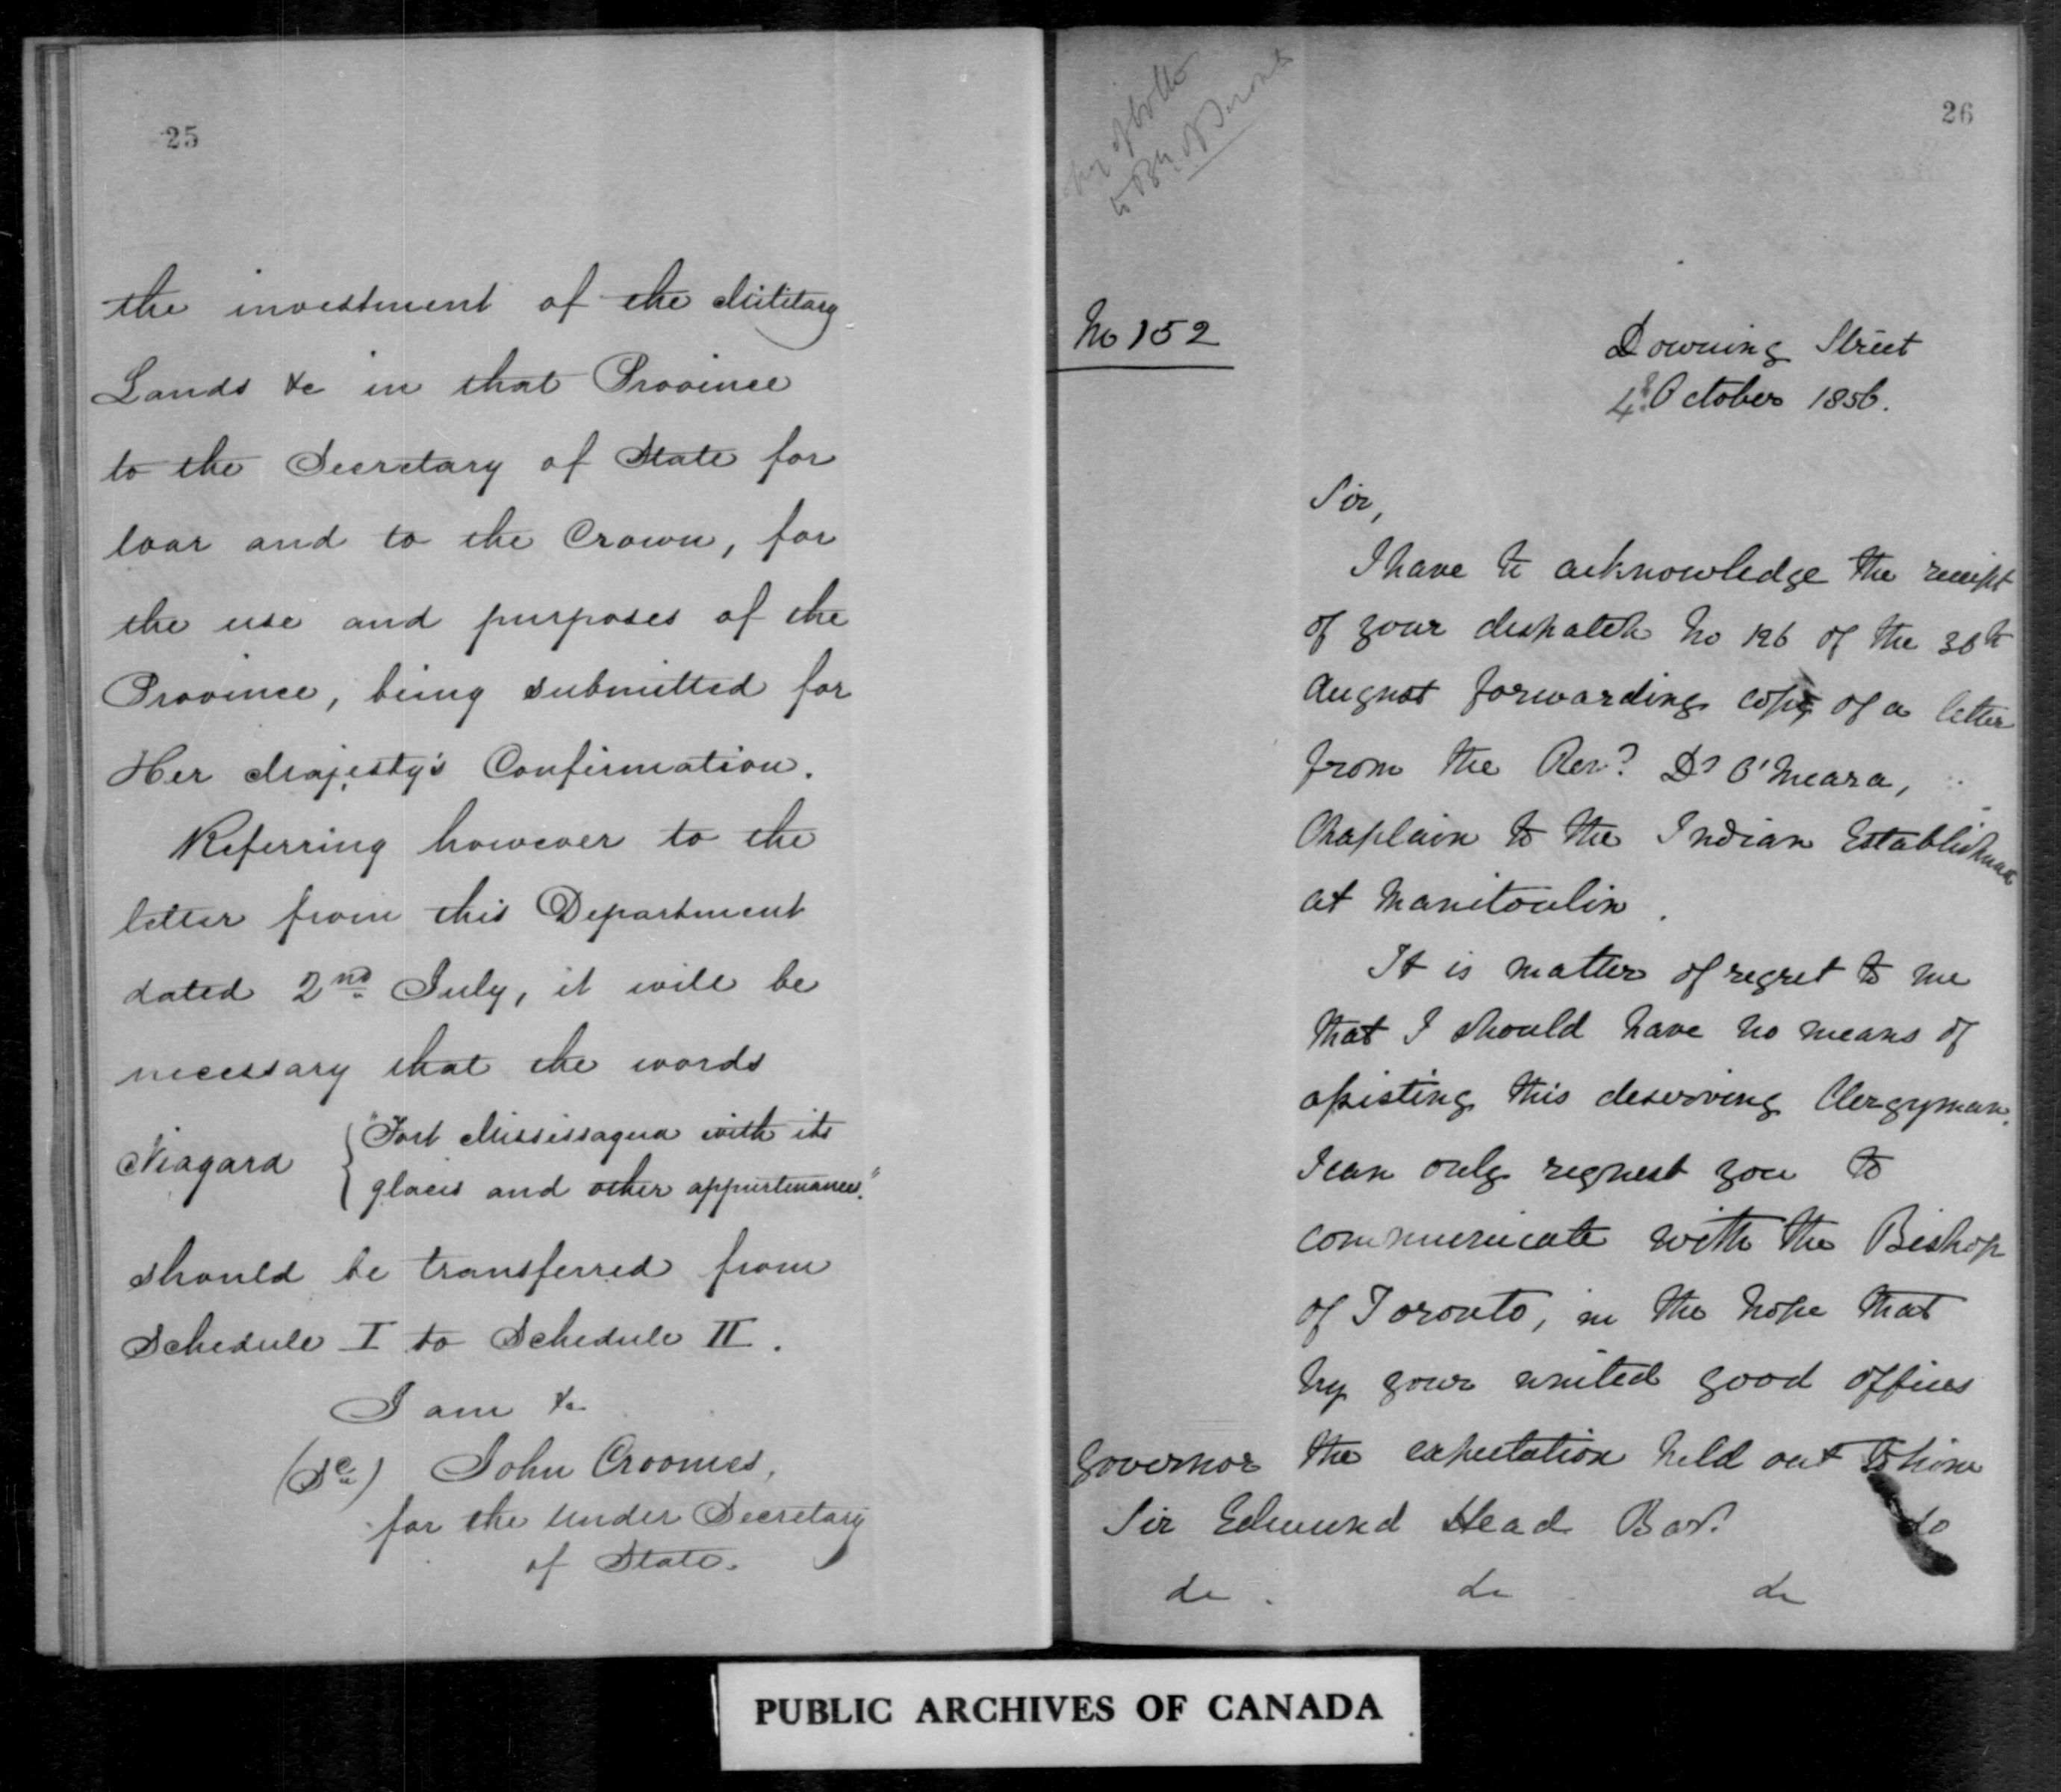 25
the investment of the Military
Lands &c in that Province
to the Secretary of State for
War and to the Crown, for
the use and purposes of the
Province, being submitted for
Her Majesty's Confirmation.
Referring however to the
letter from this Department
dated 2nd July, it will be
necessary that the words
Niagara { "Fort Mississagua with its
glacis and other appurtenances."
should be transferred from
Schedule I to Schedule II.
I am &c
(Sd) John Croomes,
for the Under Secretary
of State.
26
to Bp of Toronto
No 152
Downing Street
4th October 1856.
Sir,
I have to acknowledge the receipt
of your despatch No 126 of the 30th
August forwarding copy of a letter
from the Revd Dr O'Meara,
Chaplain to the Indian Establishment
at Manitoulin.
It is matter of regret to me
that I should have no means of
assisting this deserving Clergyman.
I can only request you to
communicate with the Bishop
of Toronto, in the hope that
by your united good offices
the expectation held out to him
Governor
Sir Edmund Head Bart
&c &c &c
PUBLIC ARCHIVES OF CANADA